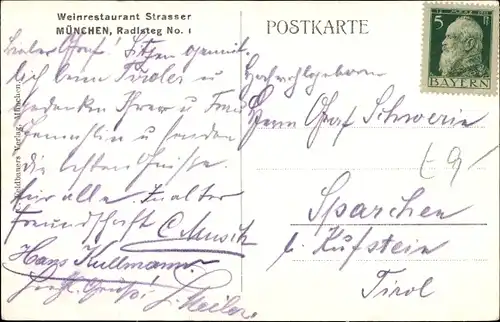 Weinrestaurant Strasser
MÜNCHEN, Radlsteg No. 1
POSTKARTE
5
BAYERN
Lieber Graf! Sitzen gemüt-
lich beim Tiroler u
gedenken Ihrer u Frau
Gemahlin u senden
die besten Grüsse
für alle. In alter
Freundschaft C Musik
Hans Kullmann
Herzl. Grüße!
Hochwohlgeboren
Herrn Graf Schwerin
Sparchen
b. Kufstein
Tirol
Verlag, München.